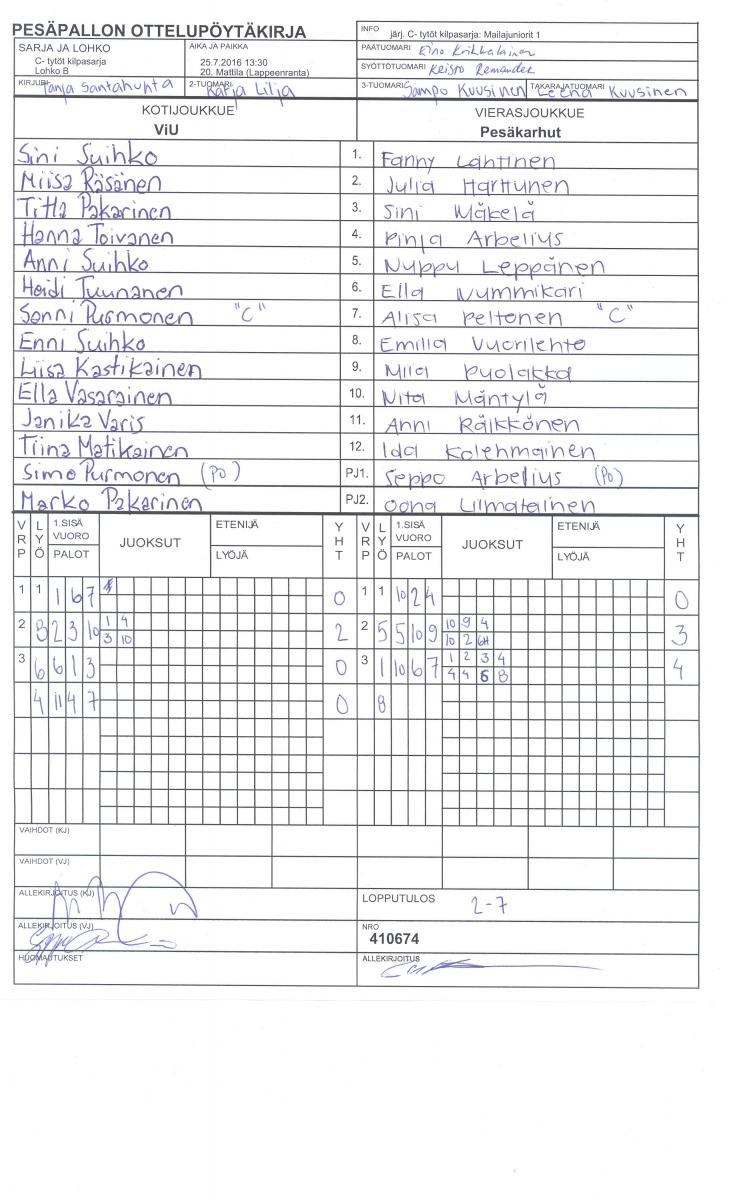 PESÄPALLON OTTELUPÖYTÄKIRJA
INFO järj. C- tytöt kilpasarja: Mailajuniorit 1
SARJA JA LOHKO
C- tytöt kilpasarja
Lohko B
AIKA JA PAIKKA
25.7.2016 13:30
20. Mattila (Lappeenranta)
PÄÄTUOMARI Eino
SYÖTTÖTUOMARI Remander
KIRJURI Tanja Santahuhta
2-TUOMARI Katja Lilja
3-TUOMARI Sampo Kuusinen
TAKARAJATUOMARI Leena Kuusinen
KOTIJOUKKUE VIERASJOUKKUE
ViU Pesäkarhut
Sini Suihko 1. Fanny Lahtinen
Miisa Räsänen 2. Julia Harttunen
Titta Pakarinen 3. Sini Mäkelä
Hanna Toivanen 4. Pinja Arbelius
Anni Suihko 5. Nuppu Leppänen
Heidi Tuunanen 6. Ella Nummikari
Sonni Purmonen "C" 7. Alisa Peltonen "C"
Enni Suihko 8. Emilia Vuorilehto
Liisa Kastikainen 9. Miia Puolakka
Ella Vasarainen 10. Nita Mäntylä
Janika Varis 11. Anni Räikkönen
Tiina Matikainen 12. Ida Kolehmainen
Simo Purmonen (PO) PJ1. Seppo Arbelius (PO)
Marko Pakarinen PJ2. Oona Liimatainen
VRP LYÖ 1.SISÄ VUORO PALOT JUOKSUT ETENIJÄ LYÖJÄ YHT VRP LYÖ 1.SISÄ VUORO PALOT JUOKSUT ETENIJÄ LYÖJÄ YHT
1 1 1 6 7 0 1 1 10 2 4 0
2 8 2 3 10 1 4 2 2 5 5 10 9 10 9 4 3
3 10 10 2 6H
3 6 6 1 3 0 3 1 10 6 7 1 2 3 4 4
4 4 6 8
4 11 4 7 0 8
VAIHDOT (KJ)
VAIHDOT (VJ)
ALLEKIRJOITUS (KJ) LOPPUTULOS 2-7
ALLEKIRJOITUS (VJ) NRO
410674
HUOMAUTUKSET ALLEKIRJOITUS